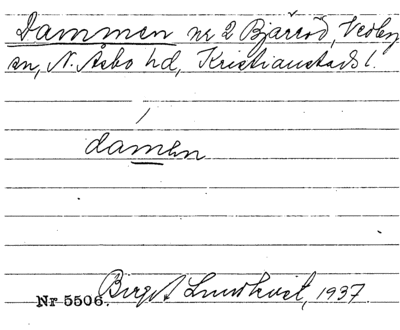 Dammen nr 2 Bjärröd, Vedby
sn, N. Åsbo hd, Kristianstads l.
damen
Nr 5506. Birgit Lundkvist, 1937